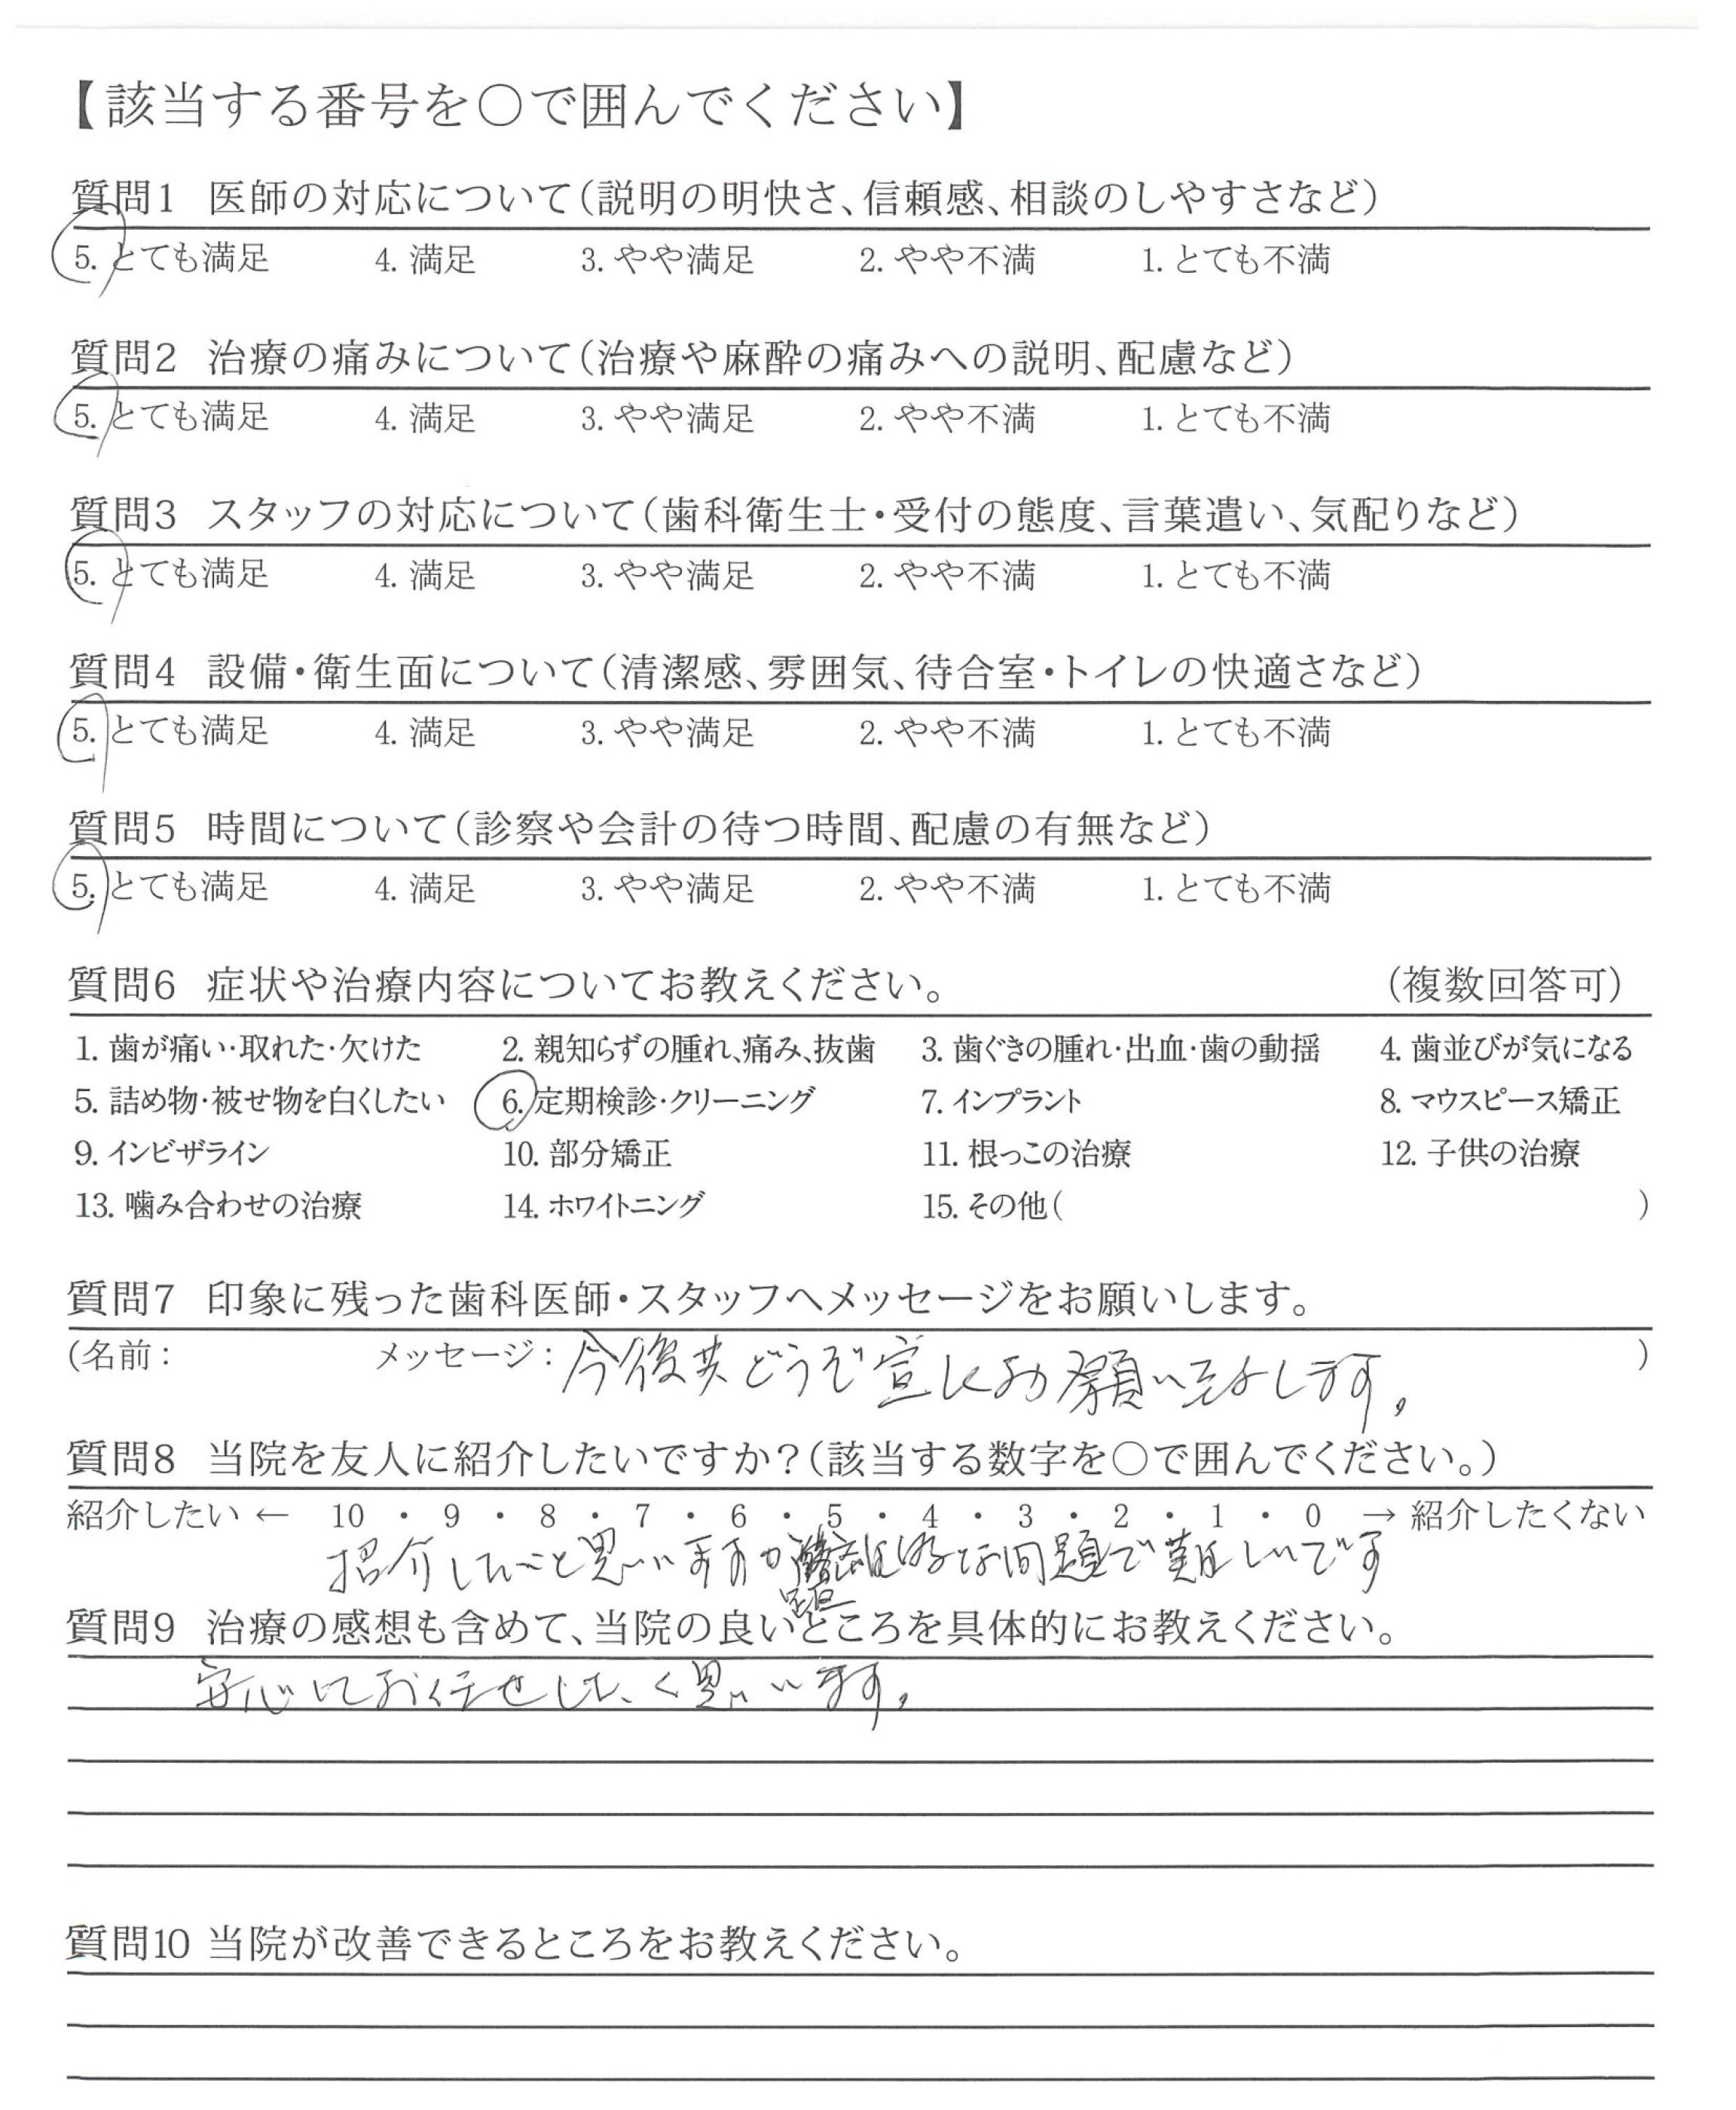 【該当する番号を〇で囲んでください】
質問1 医師の対応について（説明の明快さ、信頼感、相談のしやすさなど）
5. とても満足 4. 満足 3. やや満足 2. やや不満 1. とても不満
質問2 治療の痛みについて（治療や麻酔の痛みへの説明、配慮など）
5. とても満足 4. 満足 3. やや満足 2. やや不満 1. とても不満
質問3 スタッフの対応について（歯科衛生士・受付の態度、言葉遣い、気配りなど）
5. とても満足 4. 満足 3. やや満足 2. やや不満 1. とても不満
質問4 設備・衛生面について（清潔感、雰囲気、待合室・トイレの快適さなど）
5. とても満足 4. 満足 3. やや満足 2. やや不満 1. とても不満
質問5 時間について（診察や会計の待つ時間、配慮の有無など）
5. とても満足 4. 満足 3. やや満足 2. やや不満 1. とても不満
質問6 症状や治療内容についてお教えください。 （複数回答可）
1. 歯が痛い・取れた・欠けた 2. 親知らずの腫れ、痛み、抜歯 3. 歯ぐきの腫れ・出血・歯の動揺 4. 歯並びが気になる
5. 詰め物・被せ物を白くしたい 6. 定期検診・クリーニング 7. インプラント 8. マウスピース矯正
9. インビザライン 10. 部分矯正 11. 根っこの治療 12. 子供の治療
13. 噛み合わせの治療 14. ホワイトニング 15. その他（ ）
質問7 印象に残った歯科医師・スタッフへメッセージをお願いします。
（名前： メッセージ：今後共どうぞ宜しくお願い致します。 ）
質問8 当院を友人に紹介したいですか？（該当する数字を〇で囲んでください。）
紹介したい ← 10 ・ 9 ・ 8 ・ 7 ・ 6 ・ 5 ・ 4 ・ 3 ・ 2 ・ 1 ・ 0 → 紹介したくない
紹介したいと思いますが 的な問題で難しいです
質問9 治療の感想も含めて、当院の良いところを具体的にお教えください。
安心してお任せしたく思います。
質問10 当院が改善できるところをお教えください。